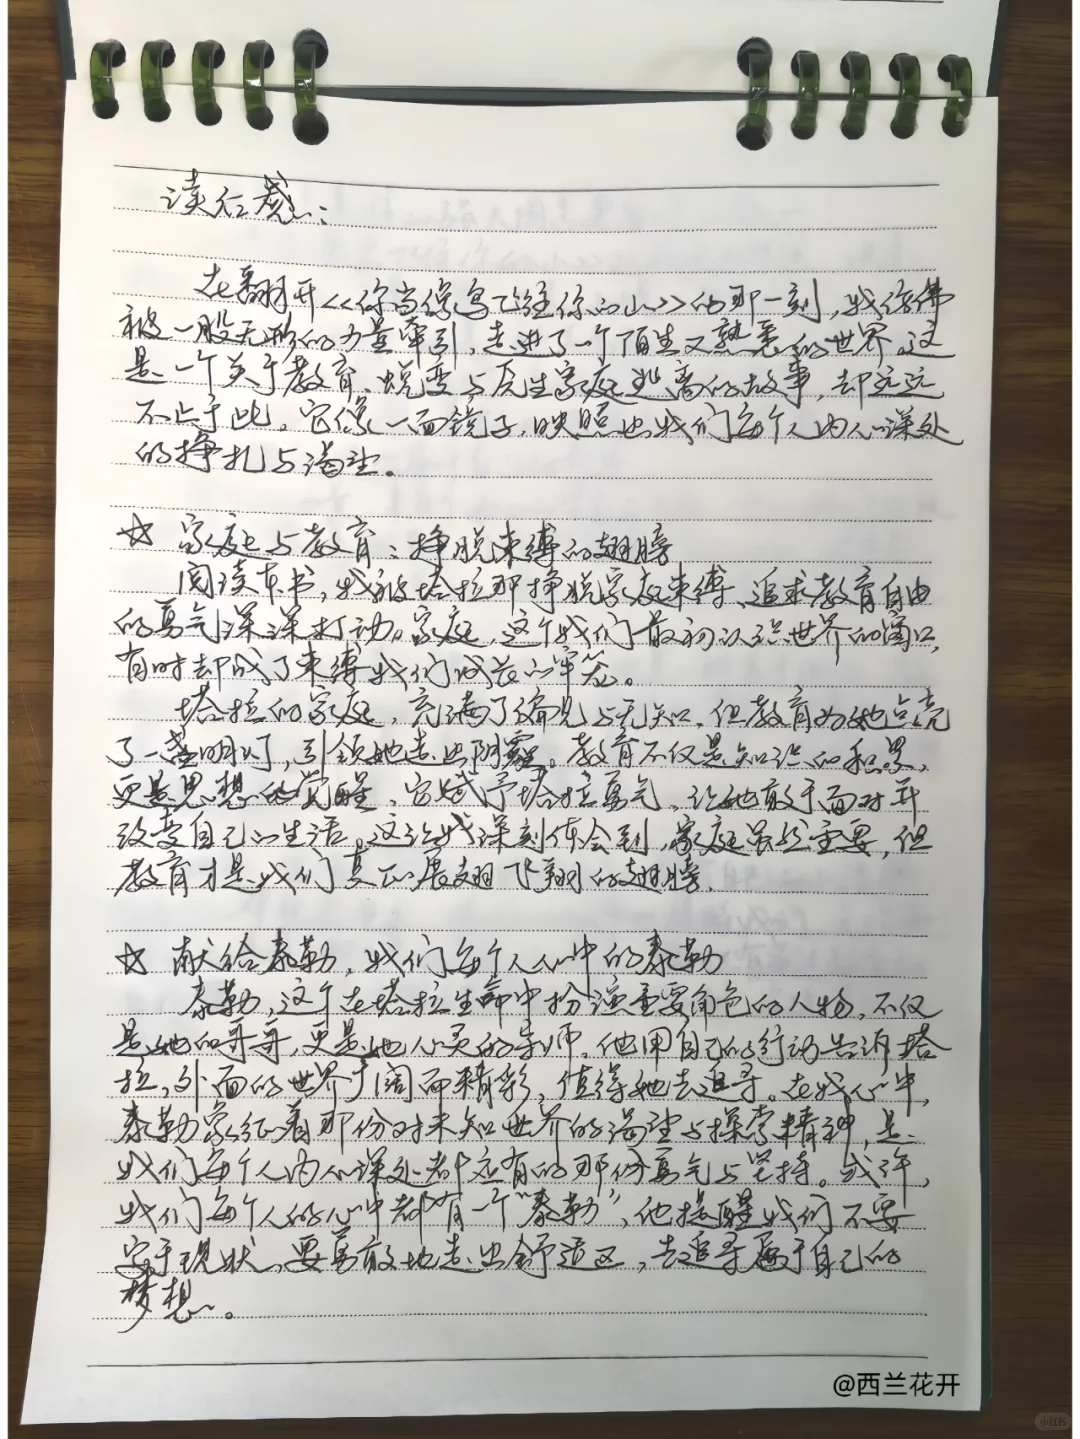 读后感:
在翻开<<你当像鸟飞往你的山>>的那一刻，我仿佛
被一股无形的力量牵引，走进了一个陌生又熟悉的世界。这
是一个关于教育、蜕变与原生家庭逃离的故事，却远远
不止于此。它像一面镜子，映照出我们每个人内心深处
的挣扎与渴望。
☆ 家庭与教育：挣脱束缚的翅膀
阅读本书，我被塔拉那挣脱家庭束缚、追求教育自由
的勇气深深打动。家庭，这个我们最初认识世界的窗口，
有时却成了束缚我们成长的牢笼。
塔拉的家庭，充满了偏见与无知，但教育为她点亮
了一盏明灯，引领她走出阴霾。教育不仅是知识的积累，
更是思想的觉醒，它赋予塔拉勇气，让她敢于面对并
改变自己的生活。这让我深刻体会到，家庭虽然重要，但
教育才是我们真正展翅飞翔的翅膀。
☆ 献给泰勒，我们每个人心中的泰勒
泰勒，这个在塔拉生命中扮演重要角色的人物，不仅
是她的哥哥，更是她心灵的导师。他用自己的行动告诉塔
拉，外面的世界广阔而精彩，值得她去追寻。在我心中，
泰勒象征着那份对未知世界的渴望与探索精神，是
我们每个人内心深处都应有的那份勇气与坚持。或许，
我们每个人的心中都有一个“泰勒”，他提醒我们不要
安于现状，要勇敢地走出舒适区，去追寻属于自己的
梦想。
@西兰花开
小红书